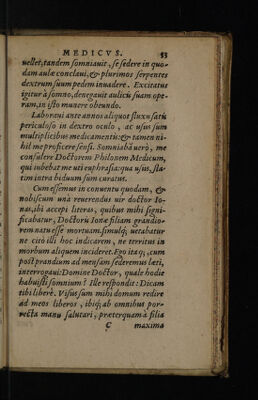 MEDICVS. 53
uellet, tandem somniauit, se sedere in quo-
dam aulæ conclaui, & plurimos serpentes
dextrum suum pedem inuadere. Excitatus
igitur à somno, denegauit aulicis suam ope-
ram, in isto munere obeundo.
Laboraui ante annos aliquot fluxu satis
periculoso in dextro oculo, ac usus sum
multiplicibus medicamentis: & tamen ni-
hil me proficere sensi. Somniabā uerò, me
consulere Doctorem Philonem Medicum,
qui iubebat me uti euphrasia: qua usus, sta-
tim intra biduum sum curatus.
Cum essemus in conuentu quodam, &
nobiscum unà reuerendus uir doctor Io-
nas, ibi accepi literas, quibus mihi signi-
ficabatur, Doctoris Ionæ filiam grandio-
rem natu esse mortuam. simulq; uetabatur
ne citò illi hoc indicarem, ne territus in
morbum aliquem incideret. Ego itaq;, cum
post prandium ad mensam sederemus læti,
interrogaui: Domine Doctor, quale hodie
habuisti somnium? Ille respondit: Dicam
tibi liberè. Visus sum mihi domum redire
ad meos liberos, ibiq; ab omnibus por-
recta manu salutari, præterquam à filia
C maxima